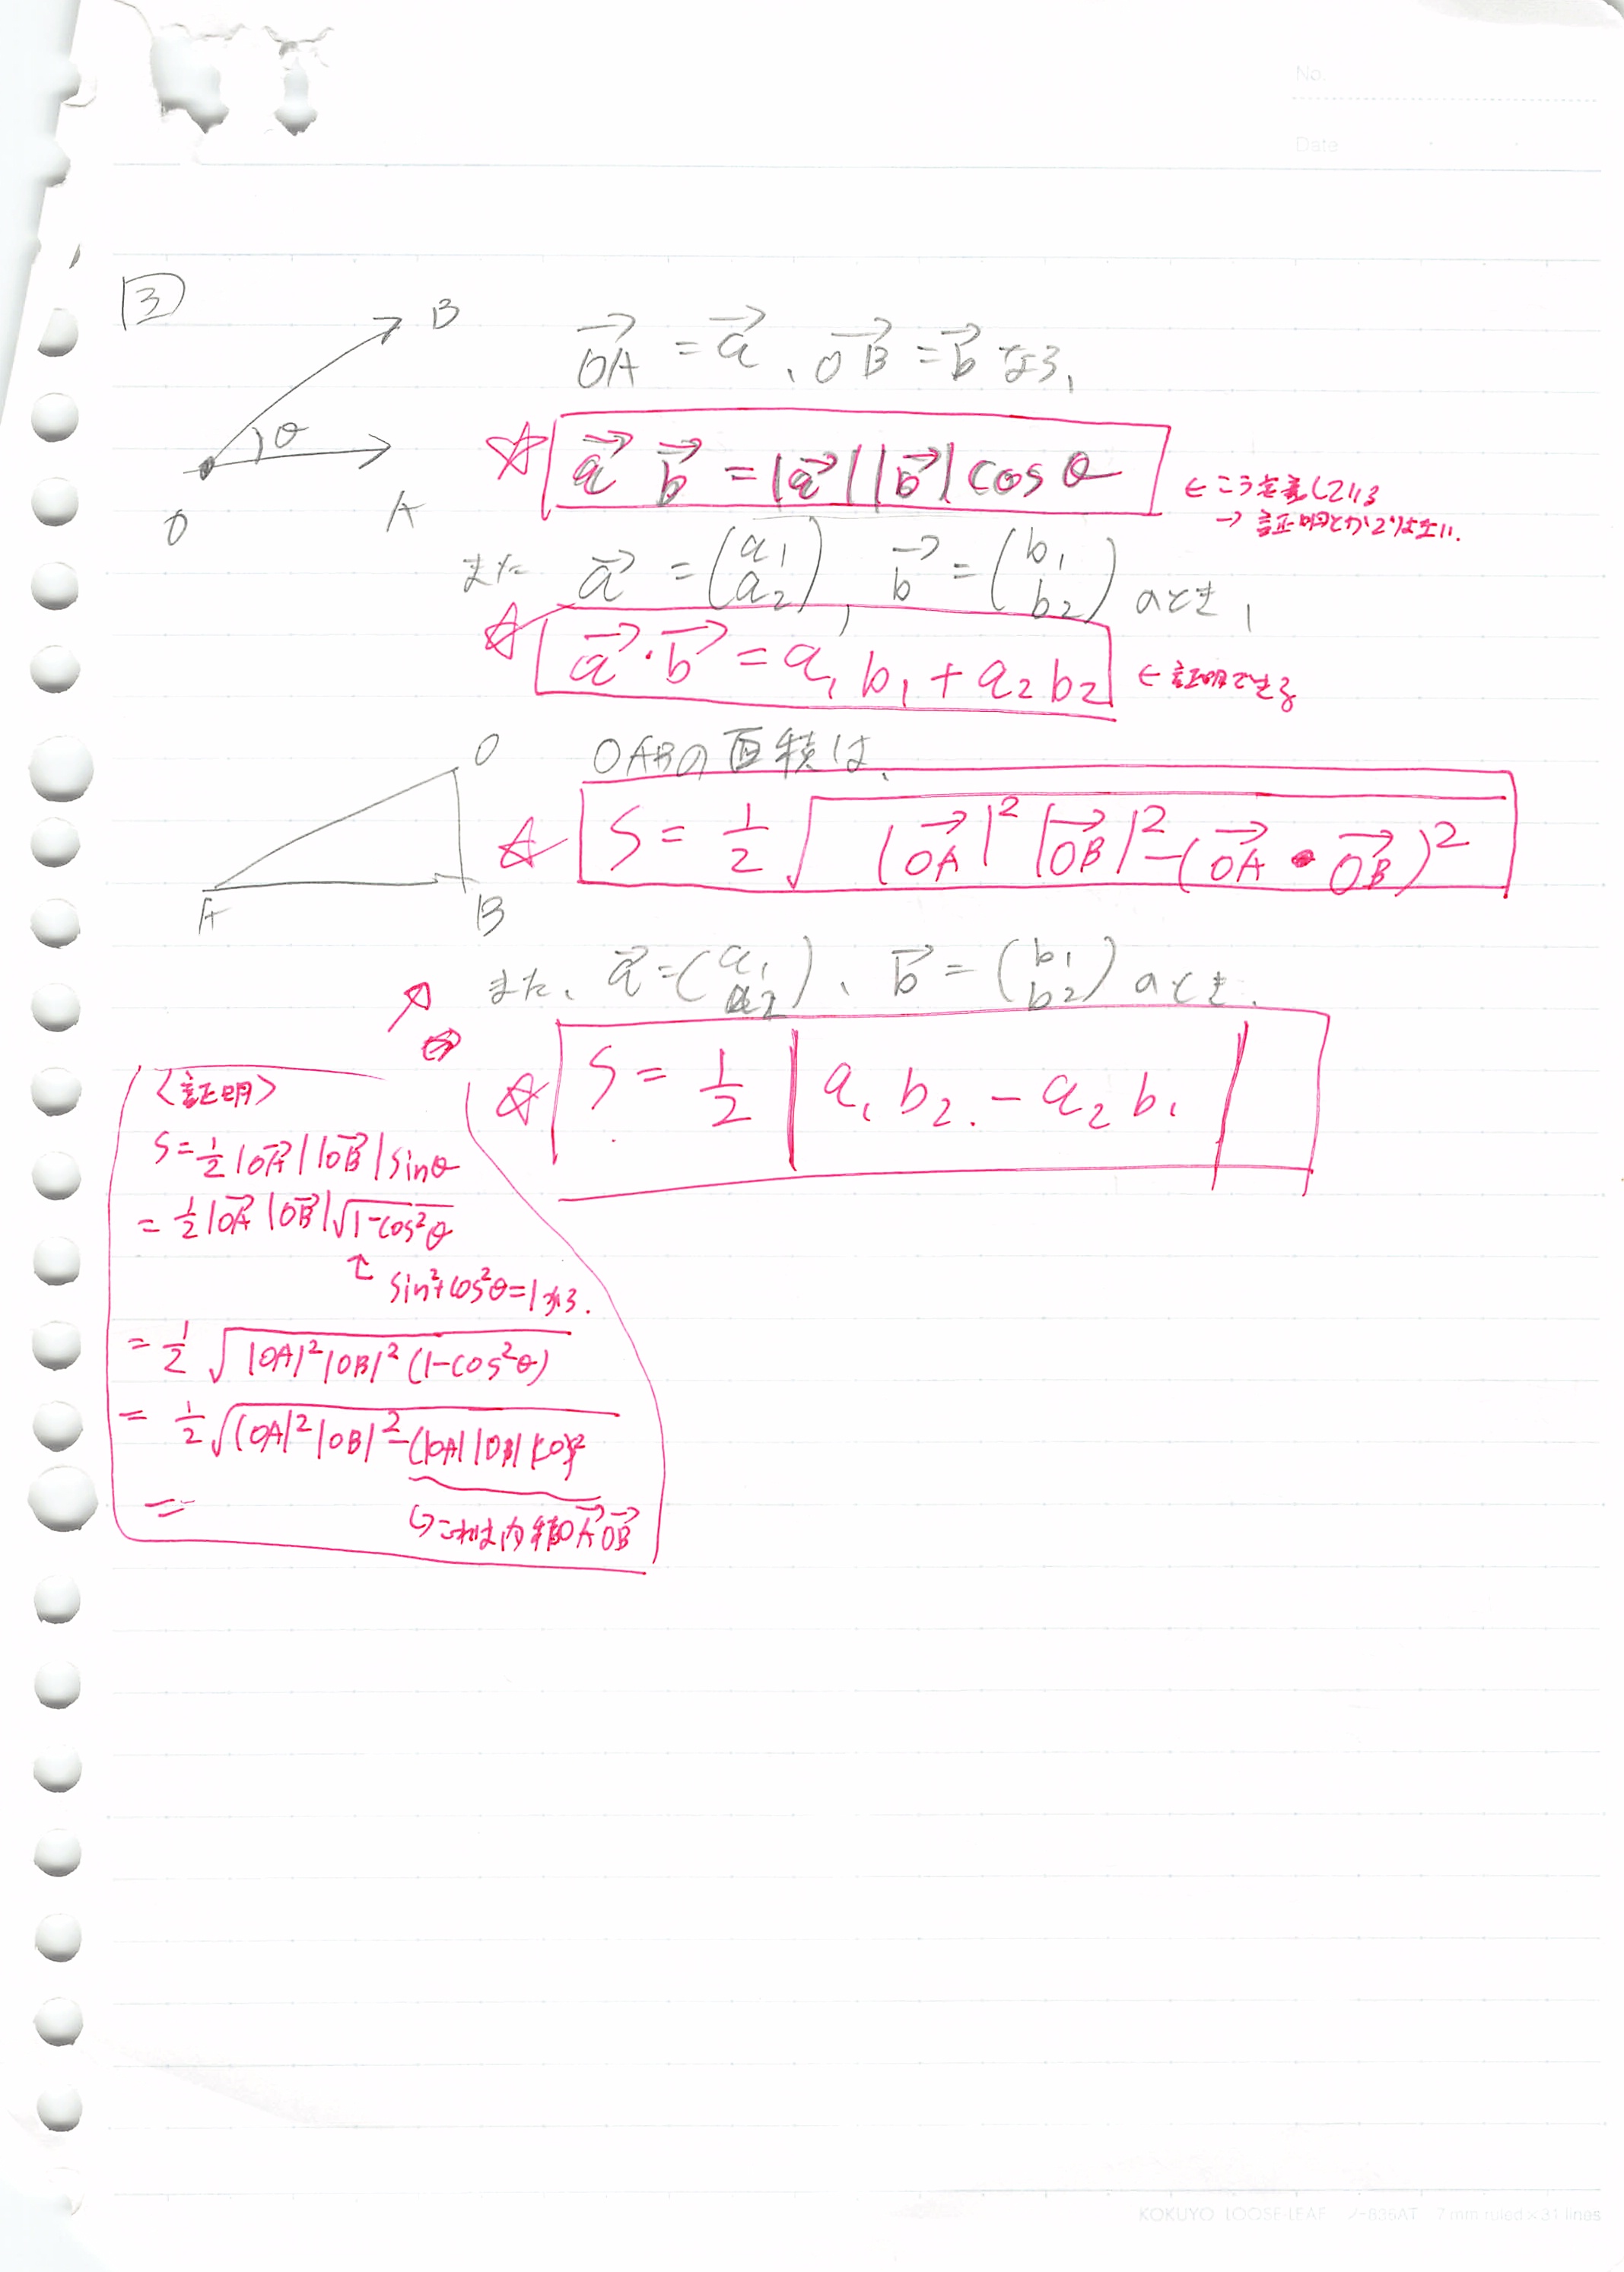 No.
Date
3
B
θ
O
A
OA→ = a→、OB→ = b→ なら、
☆ a→ b→ = |a→||b→| cos θ
← こう定義している
→ 証明とかではない.
また a→ = (a1 a2), b→ = (b1 b2) のとき、
☆ a→・b→ = a1 b1 + a2 b2
← 証明できる
O
A
B
OABの面積は、
☆ S = 1/2 √(|OA→|² |OB→|² − (OA→・OB→)²)
また、a→ = (a1 a2)、b→ = (b1 b2) のとき、
☆ S = 1/2 | a1 b2 − a2 b1 |
〈証明〉
S = 1/2 |OA→||OB→| sinθ
= 1/2 |OA→ |OB→| √(1−cos²θ)
sin²+cos²θ=1から.
= 1/2 √(|OA|²|OB|² (1−cos²θ))
= 1/2 √(|OA|²|OB|² −(|OA||OB|
=
↳これは内積OA→OB→
KOKUYO LOOSE-LEAF ノ-836AT 7 mm ruled×31 lines